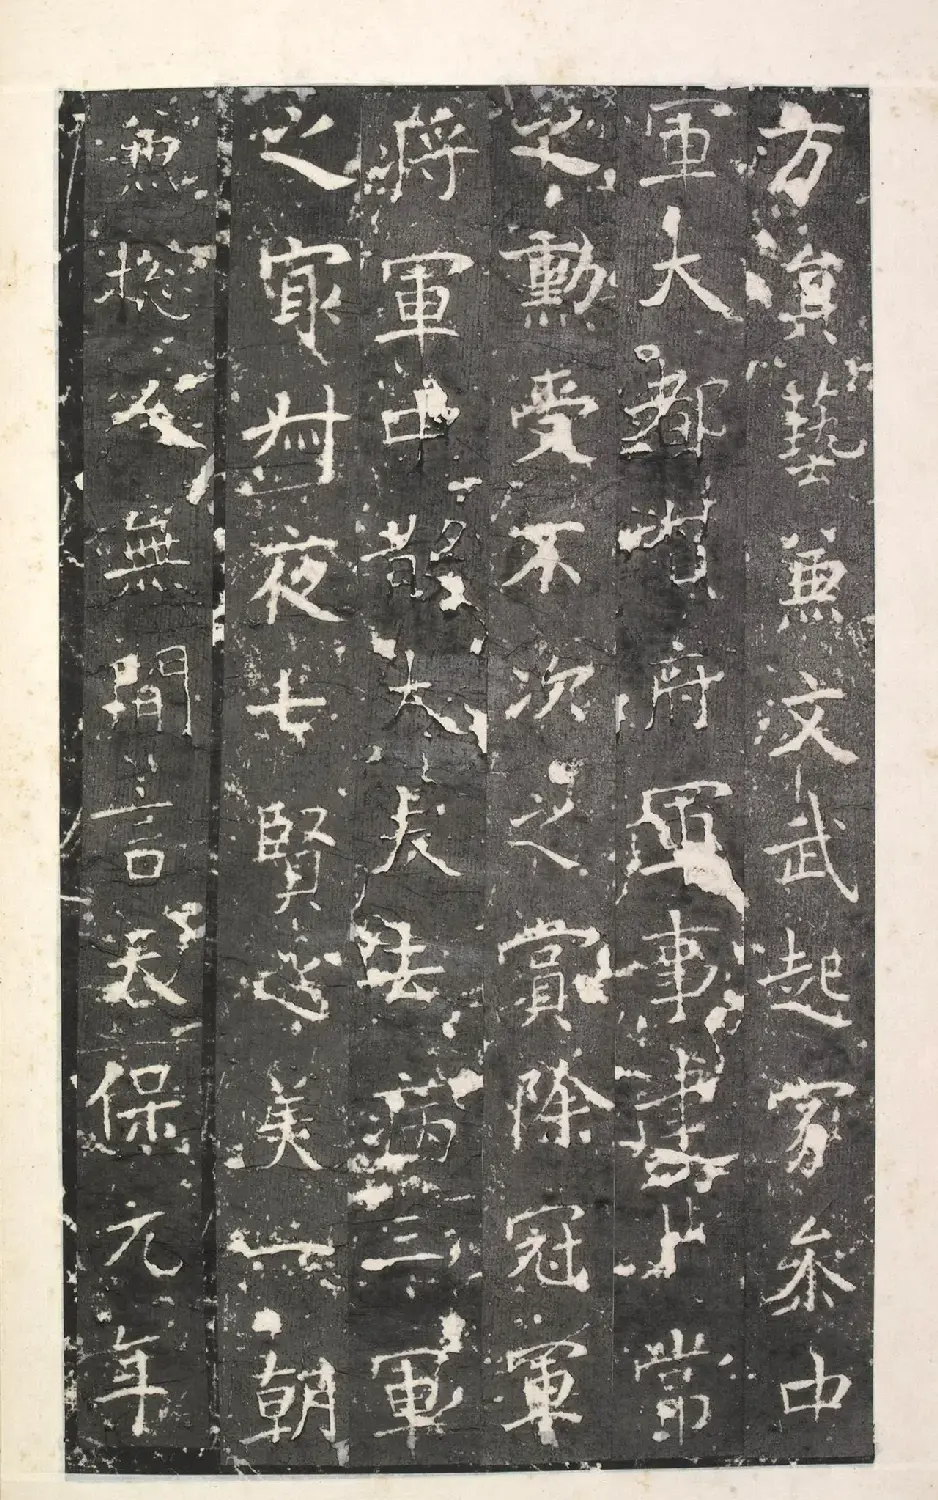 方藝兼文武起家參中
軍大都督府軍事建非常
之勳受不次之賞除冠軍
將軍中散大夫去病三軍
之冣叔夜七賢之美一朝
兼總人無間言天保元年